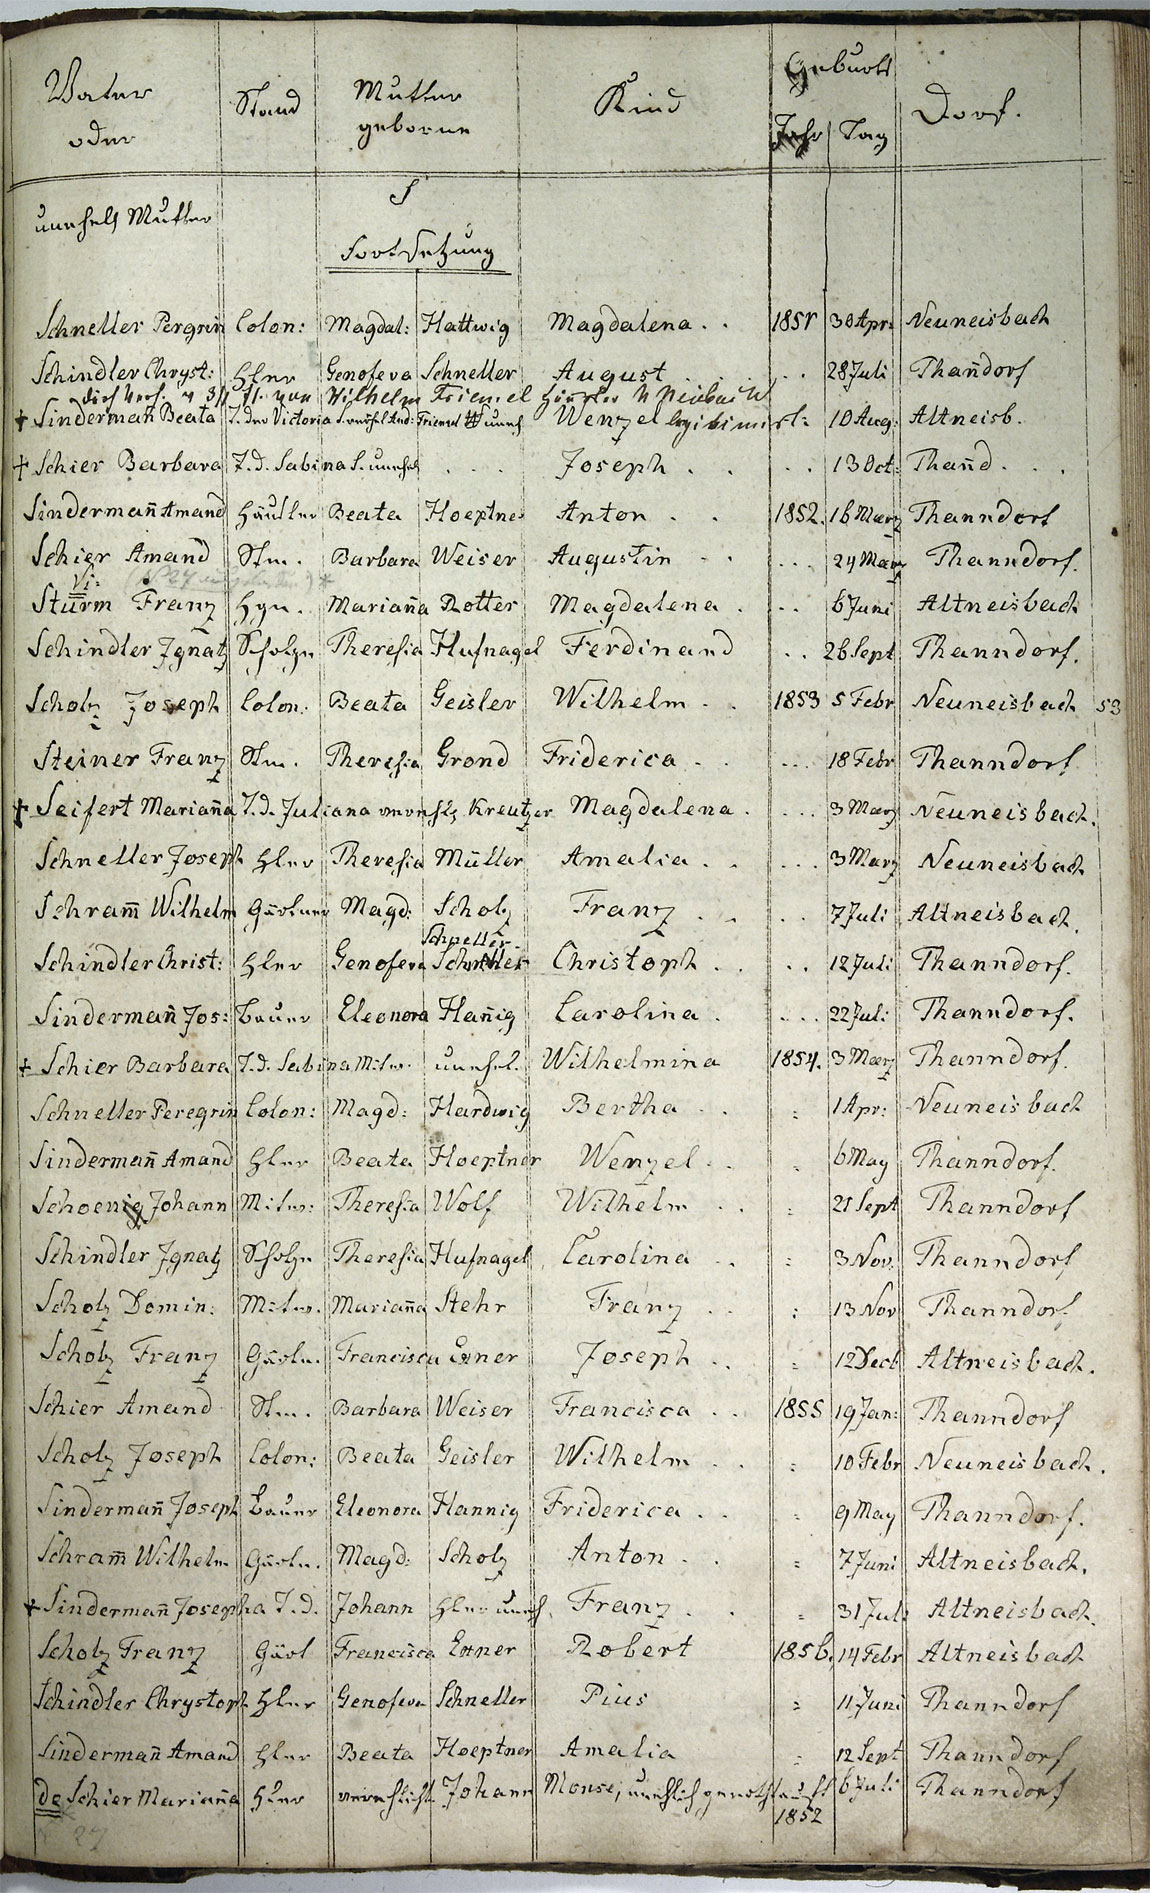 Vater oder Stand Mutter geborne Kind Geburts Jahr Tag Dorf.
unehel. Mutter
S
Fortsetzung
Schneller Pergrin Colon: Magdal: Hattwig Magdalena . . 1851 30 Apr: Neuneisbach
Schindler Chryst: Hler Genofeva Schneller August . . . 28 Juli Thanndorf
Wilhelm Friemel Häusler
+ Sindermañ Beata T. der Victoria Friemel uneh Wenzel legitimirt: 10 Aug: Altneisb.
+ Schier Barbara T. d. Sabina S. unehel . . . Joseph . . . . 13 Oct: Thañd. . .
Sindermañ Amand Häusler Beata Hoeptner Anton . . 1852. 16 Maerz Thanndorf
Schier Amand Stm. Barbara Weiser Augustin . . . . . 24 Maerz Thanndorf.
Vi:
Sturm Franz Hgn. Mariaña Rotter Magdalena . . . 6 Juni Altneisbach
Schindler Jgnatz Scholze Theresia Hufnagel Ferdinand . . 26 Sept Thanndorf.
Scholz Joseph Colon: Beata Geisler Wilhelm . . 1853 5 Febr Neuneisbach 53
Steiner Franz Stm. Theresia Grond Friderica . . . . . 18 Febr Thanndorf
+ Seifert Mariaña T. d. Juliana verehl. Kreutzer Magdalena . . . . 3 Maerz Neuneisbach.
Schneller Joseph Hler Theresia Müller Amalia . . . . . 3 Maerz Neuneisbach
Schram̃ Wilhelm Gärtner Magd: Scholz Franz . . . . 7 Juli Altneisbach.
Schneller
Schindler Christ: Hler Genofeva Christoph . . . . 12 Juli Thanndorf.
Sindermañ Jos: Bauer Eleonora Hañig Carolina . . . . 22 Juli Thanndorf.
+ Schier Barbara T. d. Sabina Mitw. unehel. Wilhelmina 1854. 3 Maerz Thanndorf.
Schneller Peregrin Colon: Magd: Hardwig Bertha . . : 1 Apr: Neuneisbach
Sindermañ Amand Hler Beata Hoeptner Wenzel . . : 6 May Thanndorf.
Schoenig Johann Mitw: Theresia Wolf Wilhelm . . : 21 Sept Thanndorf
Schindler Jgnatz Scholze Theresia Hufnagel Carolina . . : 3 Nov. Thanndorf
Scholz Domin: Mitw. Mariaña Stehr Franz . . : 13 Nov Thanndorf.
Scholz Franz Gärtn. Francisca Exner Joseph . . : 12 Decb Altneisbach.
Schier Amand Stm. Barbara Weiser Francisca . . 1855 19 Jan: Thanndorf
Scholz Joseph Colon: Beata Geisler Wilhelm . . : 10 Febr Neuneisbach.
Sindermañ Joseph Bauer Eleonora Hannig Friderica . . : 9 May Thanndorf.
Schram̃ Wilhelm Gärtn. Magd: Scholz Anton . . : 7 Juni Altneisbach.
+ Sindermañ Josepha T. d. Johann Hler uneh. Franz . . : 31 Juli Altneisbach.
Scholz Franz Gärt Francisca Exner Robert 1856. 14 Febr Altneisbach
Schindler Chrystoph Hler Genofeva Schneller Pius : 11 Juni Thanndorf
Sindermañ Amand Hler Beata Hoeptner Amalia : 12 Sept Thanndorf
de Schier Mariaña Hler verehlicht Johann Monse, unehlich genothtauft 6 Juli Thanndorf
1852
27